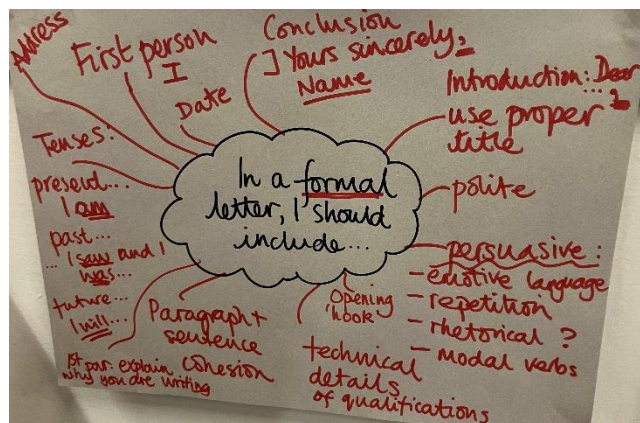 Address
First person
I
Date
Conclusion
Yours sincerely,
Name
Introduction: Dear
...
use proper
title
polite
persuasive:
- emotive language
- repetition
- rhetorical ?
- modal verbs
Opening
hook
technical
details
of qualifications
Paragraph +
sentence
cohesion
1st par: explain
why you are writing
Tenses:
present...
I am
past...
... I saw and I
was...
future...
I will...
In a formal
letter, I should
include...